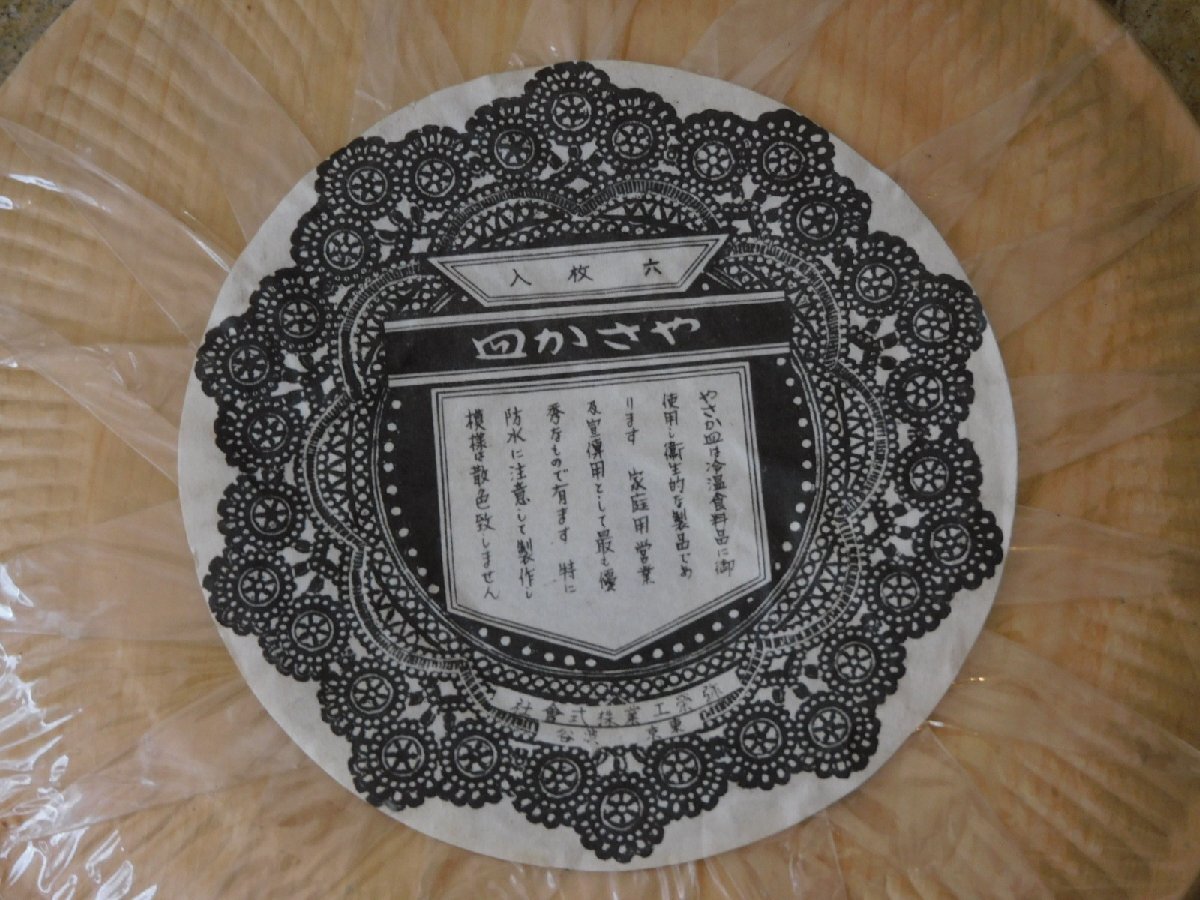 六枚入
やさか皿
やさか皿は冷温食料品に御
使用し衛生的な製品であ
ります 家庭用営業
及宣傳用として最も優
秀なもので有ます 特に
防水に注意して製作し
模様は散色致しません
弥栄工業株式會社
東京 渋谷